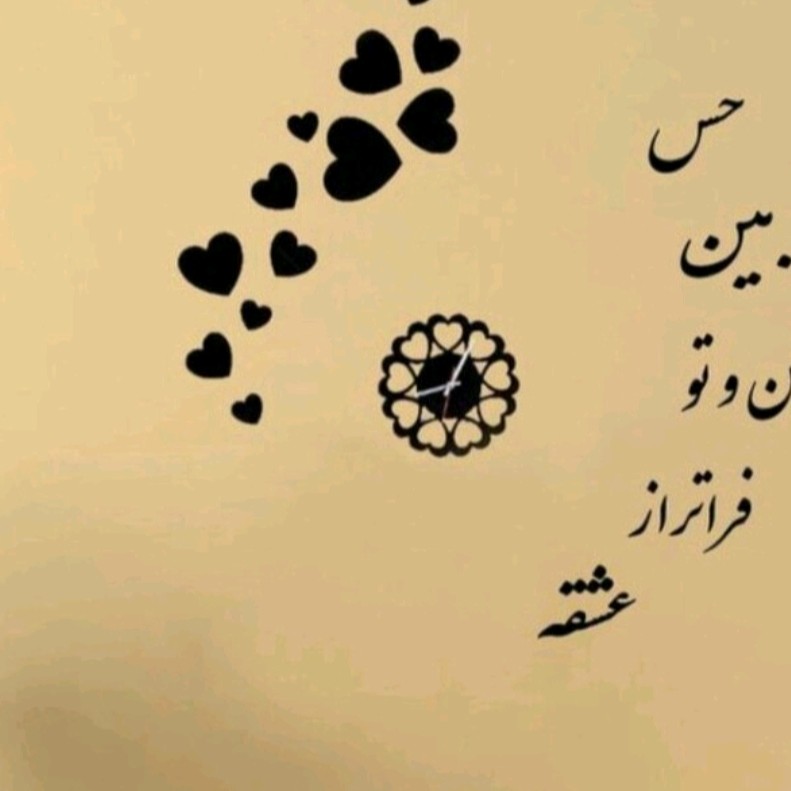 حس
بین
ن و تو
فراتر از
عشقه